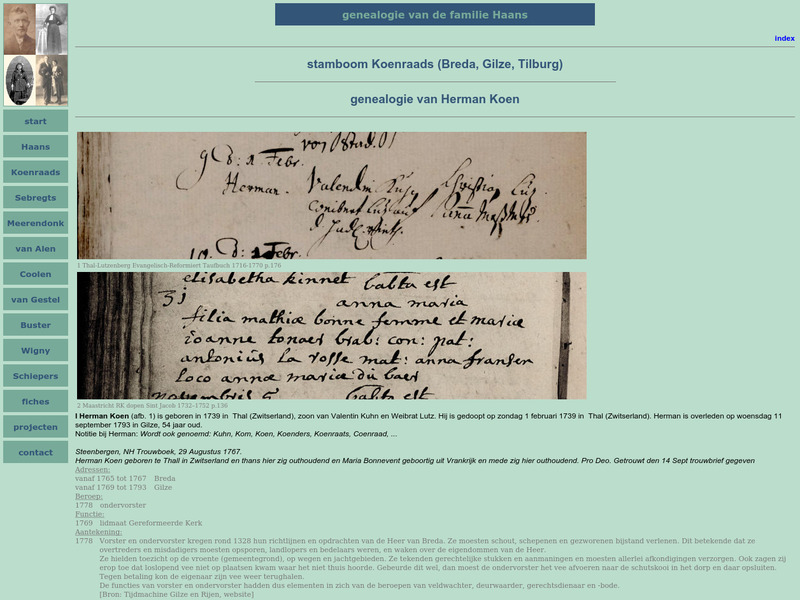 genealogie van de familie Haans
index
stamboom Koenraads (Breda, Gilze, Tilburg)
genealogie van Herman Koen
start
Haans
Koenraads
Sebregts
Meerendonk
van Alen
Coolen
van Gestel
Buster
Wigny
Schiepers
fiches
projecten
contact
d: 1 Febr.
Herman. Valendin
d: 2 Febr.
1 Thal-Lutzenberg Evangelisch-Reformiert Taufbuch 1716-1770 p.176
elisabetha kinnet bapta est
31 anna maria
filia mathiæ bonne femme et mariæ
joanne tonaer brab: con: pat:
antonius la rosse mat: anna fransen
loco annæ mariæ du baer
novembris bapta est
2 Maastricht RK dopen Sint Jacob 1732-1752 p.136
I Herman Koen (afb. 1) is geboren in 1739 in Thal (Zwitserland), zoon van Valentin Kuhn en Weibrat Lutz. Hij is gedoopt op zondag 1 februari 1739 in Thal (Zwitserland). Herman is overleden op woensdag 11
september 1793 in Gilze, 54 jaar oud.
Notitie bij Herman: Wordt ook genoemd: Kuhn, Kom, Koen, Koenders, Koenraats, Coenraad, ...
Steenbergen, NH Trouwboek, 29 Augustus 1767.
Herman Koen geboren te Thall in Zwitserland en thans hier zig outhoudend en Maria Bonnevent geboortig uit Vrankrijk en mede zig hier outhoudend. Pro Deo. Getrouwt den 14 Sept trouwbrief gegeven
Adressen:
vanaf 1765 tot 1767 Breda
vanaf 1769 tot 1793 Gilze
Beroep:
1778 ondervorster
Functie:
1769 lidmaat Gereformeerde Kerk
Aantekening:
1778 Vorster en ondervorster kregen rond 1328 hun richtlijnen en opdrachten van de Heer van Breda. Ze moesten schout, schepenen en gezworenen bijstand verlenen. Dit betekende dat ze
overtreders en misdadigers moesten opsporen, landlopers en bedelaars weren, en waken over de eigendommen van de Heer.
Ze hielden toezicht op de vroente (gemeentegrond), op wegen en jachtgebieden. Ze tekenden gerechtelijke stukken en aanmaningen en moesten allerlei afkondigingen verzorgen. Ook zagen zij
erop toe dat loslopend vee niet op plaatsen kwam waar het niet thuis hoorde. Gebeurde dit wel, dan moest de ondervorster het vee afvoeren naar de schutskooi in het dorp en daar opsluiten.
Tegen betaling kon de eigenaar zijn vee weer terughalen.
De functies van vorster en ondervorster hadden dus elementen in zich van de beroepen van veldwachter, deurwaarder, gerechtsdienaar en -bode.
[Bron: Tijdmachine Gilze en Rijen, website]